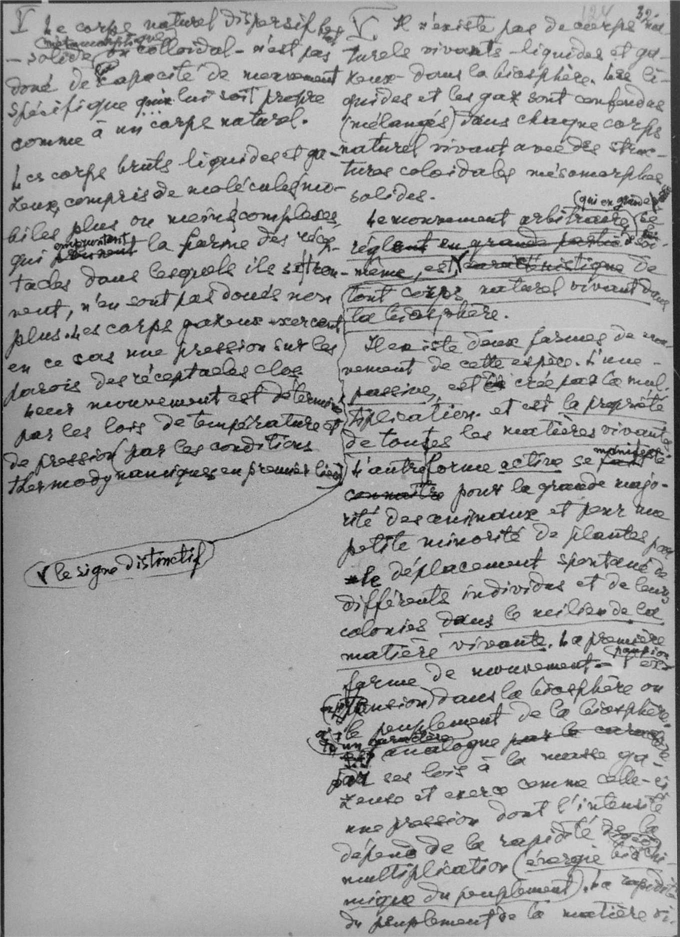 V Le corps naturel dispersif
métamorphique
- solide ou colloïdal - n'est pas
doné de capacité de mouvement
spécifique qui lui soit propre
comme à un corps naturel.
Les corps bruts liquides et ga-
zeux, compris de molécules mo-
biles plus ou moins complexes,
empruntant
qui prennent la forme des récep-
tacles dans lesquels ils se trou-
vent, n'en sont pas doués non
plus. Les corps gazeux exercent
en ce cas une pression sur les
parois des réceptacles clos
Leur mouvement est déterminé
par les lois de température et
de pression (par les conditions
thermodynamiques en premier lieu)
V le signe distinctif
32
V. Il n'existe pas de corps na-
turels vivants - liquides et ga-
zeux - dans la biosphère. Les li-
quides et les gaz sont confondus
(mélangés) dans chaque corps
naturel vivant avec des struc-
tures coloïdales mésomorphes
solides.
(qui en grande
Le mouvement arbitraire, se
réglant en grande partie soi
même, est V caractéristique de
tout corps naturel vivant dans
la biosphère.
Il existe deux formes de mou-
vement de cette espèce. L'une -
passive, est créé par la mul-
tiplication et est la propriété
de toutes les matières vivantes.
manifeste
L'autre forme active se fait
connaître pour la grande majo-
rité des animaux et pour une
petite minorité de plantes par
le déplacement spontané de
différents individus et de leurs
colonies dans le milieu de la
matière vivante. La première
forme de mouvement - l'ex-
pansion
pansion) dans la biosphère ou
le peuplement de la biosphère,
a un caractère
est analogue par le caractère
par ses lois à la masse ga-
zeuse et exerce comme celle-ci
une pression dont l'intensité
dépend de la rapidité de la
multiplication (énergie biochi-
mique du peuplement). La rapidité
du peuplement de la matière vi-